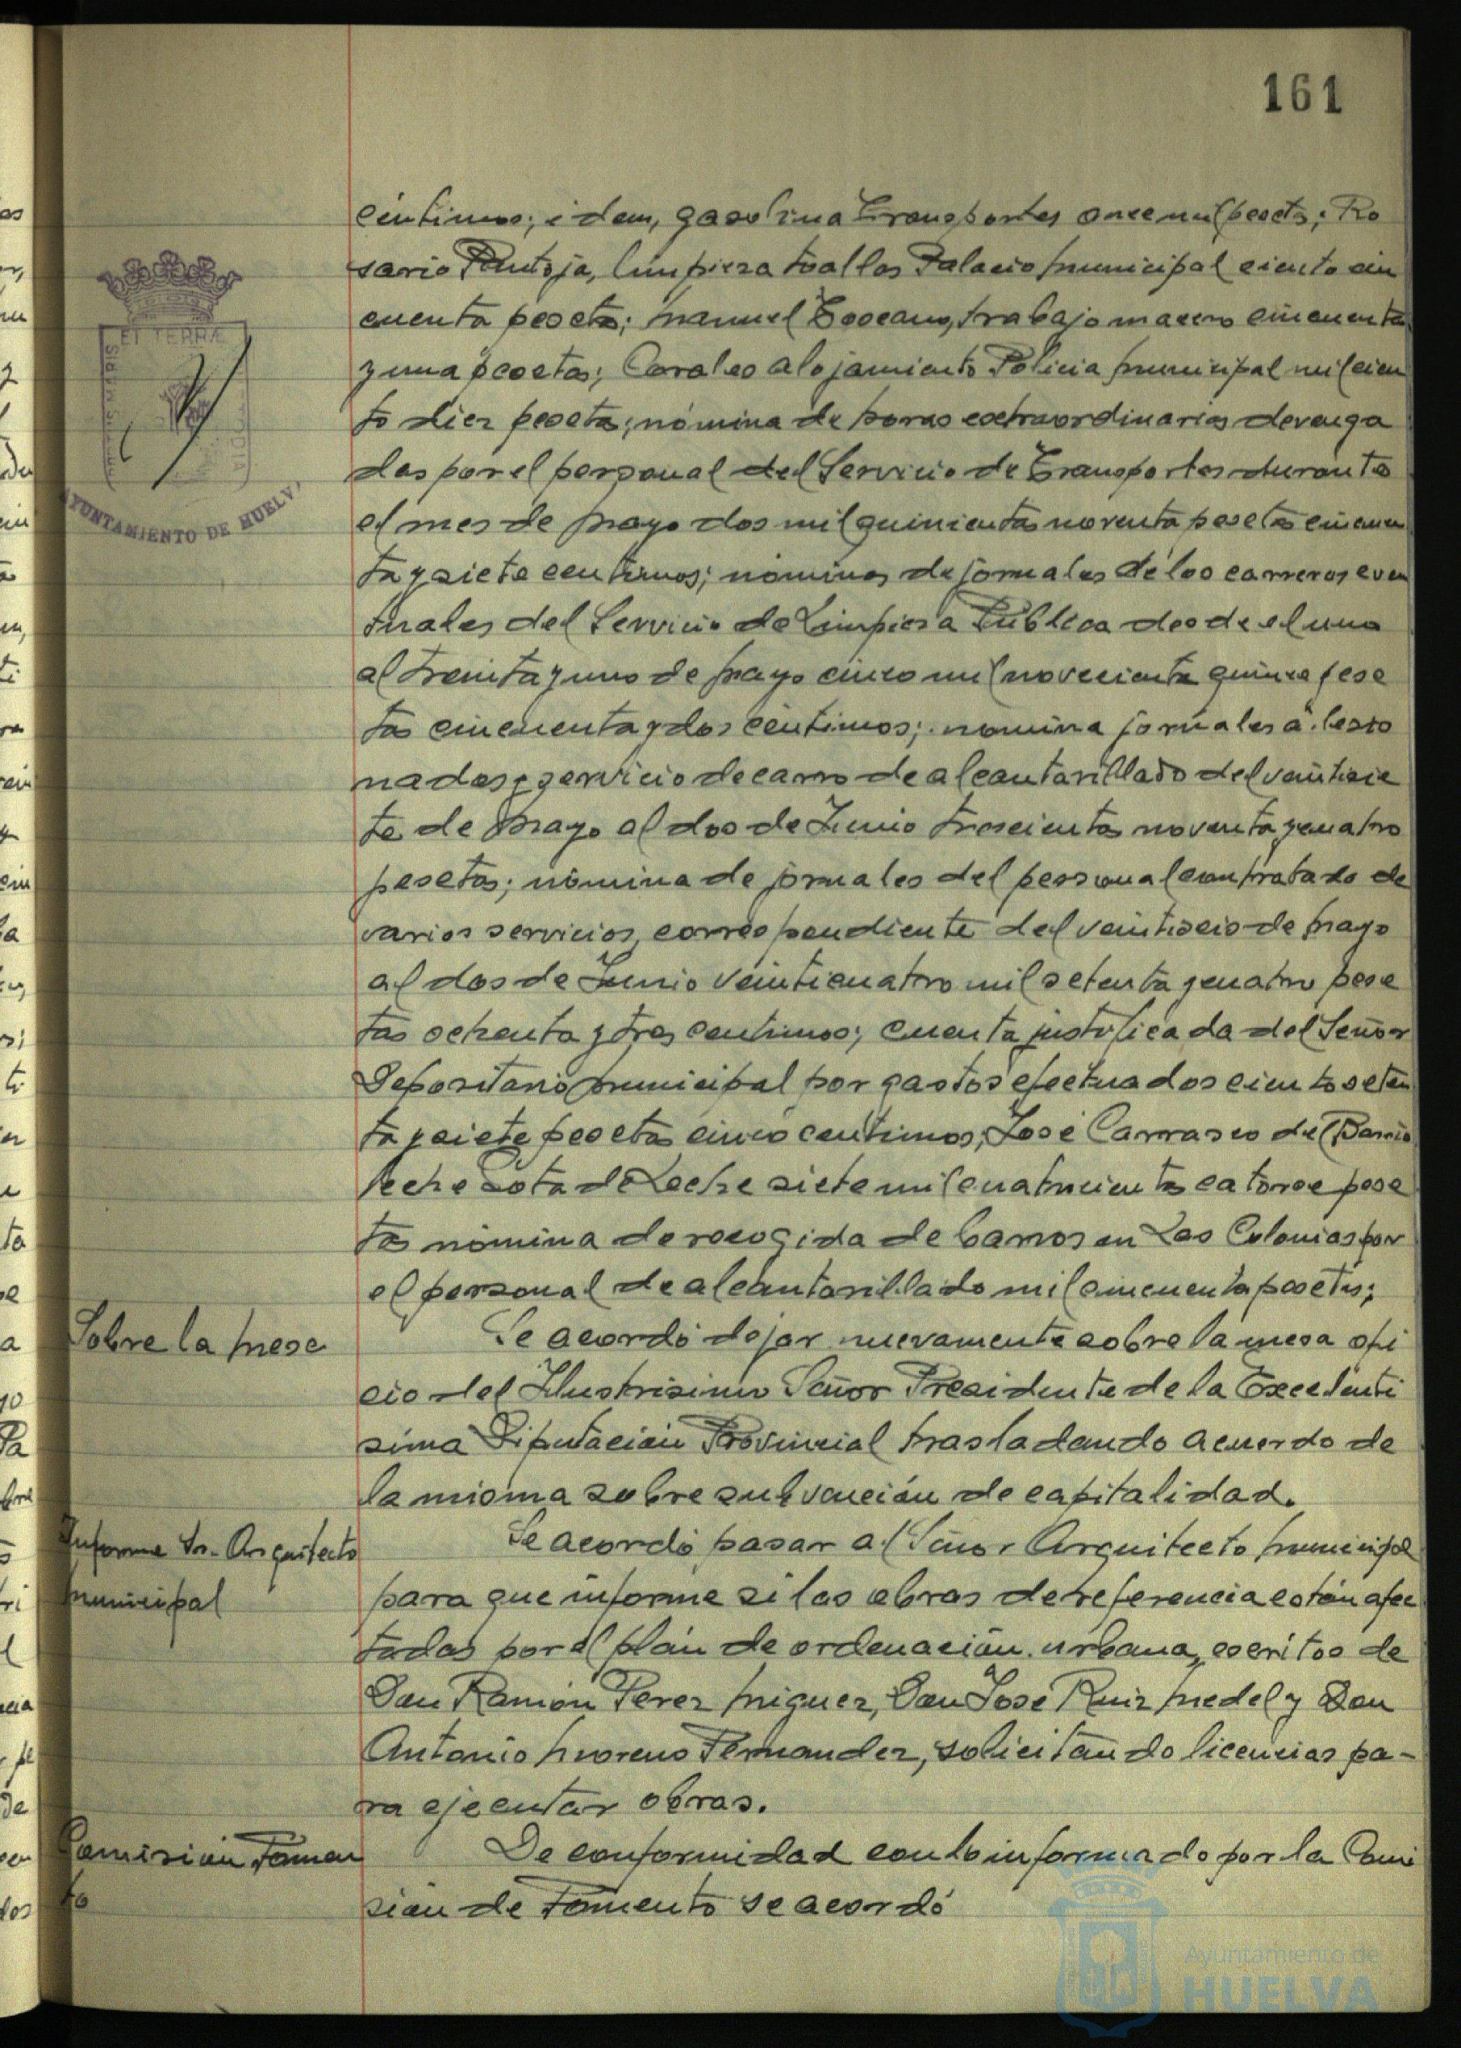 161
céntimos; idem, gasolina Transportes once mil pesetas; Ro
sario Pantoja, limpieza toallas Palacio municipal ciento cin
cuenta pesetas; Manuel Toscano, trabajo macero cincuenta
y una pesetas; Corales alojamiento Policia municipal mil cien
to diez pesetas; nómina de horas extraordinarias devenga
das por el personal del Servicio de Transportes durante
el mes de mayo dos mil quinientas noventa pesetas cincuen
ta y siete centimos; nóminas de jornales de los carreros even
tuales del Servicio de Limpieza Publica desde el uno
al treinta y uno de mayo cinco mil novecientas quince pese
tas cincuenta y dos céntimos; nomina jornales a lesio
nados y servicio de carro de alcantarillado del veintisie
te de mayo al dos de Junio trescientas noventa y cuatro
pesetas; nómina de jornales del personal contratado de
varios servicios, correspondiente del veintiseis de mayo
al dos de Junio veinticuatro mil setenta y cuatro pese
tas ochenta y tres centimos; cuenta justificada del Señor
Depositario municipal por gastos efectuados ciento seten
ta y siete pesetas cinco centimos; José Carrasco del Barrio
leche Gota de Leche siete mil cuatrocientas catorce pese
tas nómina de recogida de barros en Las Colonias por
el personal de alcantarillado mil cincuenta pesetas;
Sobre la mesa
Se acordó dejar nuevamente sobre la mesa ofi
cio del Ilustrisimo Señor Presidente de la Excelenti
sima Diputación Provincial trasladando acuerdo de
la misma sobre subvención de capitalidad.
Informe Sr. Arquitecto
municipal
Se acordó pasar al Señor Arquitecto municipal
para que informe si las obras de referencia están afec
tadas por el plán de ordenación urbana, escritos de
Don Ramón Perez Miguez, Don José Ruiz Medel y Don
Antonio Moreno Fernandez, solicitando licencias pa-
ra ejecutar obras.
Comisión Fomen
to
De conformidad con lo informado por la Comi
sión de Fomento se acordó
ET TERRÆ
AYUNTAMIENTO DE HUELVA
Ayuntamiento de
HUELVA